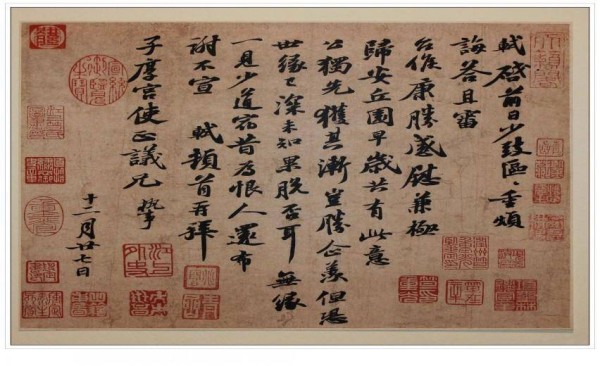 軾啟前日少致區〻重煩
誨答且審
台候康勝感慰兼極
歸安丘園早歲共有此意
公獨先獲其漸豈勝企羨但恐
世緣已深未知果脫否耳 無緣
一見少道宿昔為恨人還布
謝不宣 軾頓首再拜
子厚宮使正議兄 執事
十二月廿七日